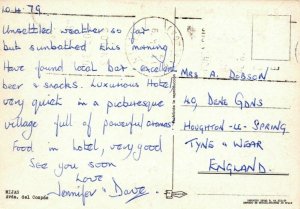 10.4.79
Unsettled weather so far
but sunbathed this morning
Have found local bar - excellent
beer & snacks. Luxurious Hotel
very quiet in a picturesque
village full of powerful aromas
Food in hotel, very good
See you soon
Love
Jennifer & Dave
MIJAS
Avda. del Compás
MRS A. DOBSON
40, DENE GDNS
HOUGHTON-LE-SPRING
TYNE & WEAR
ENGLAND.